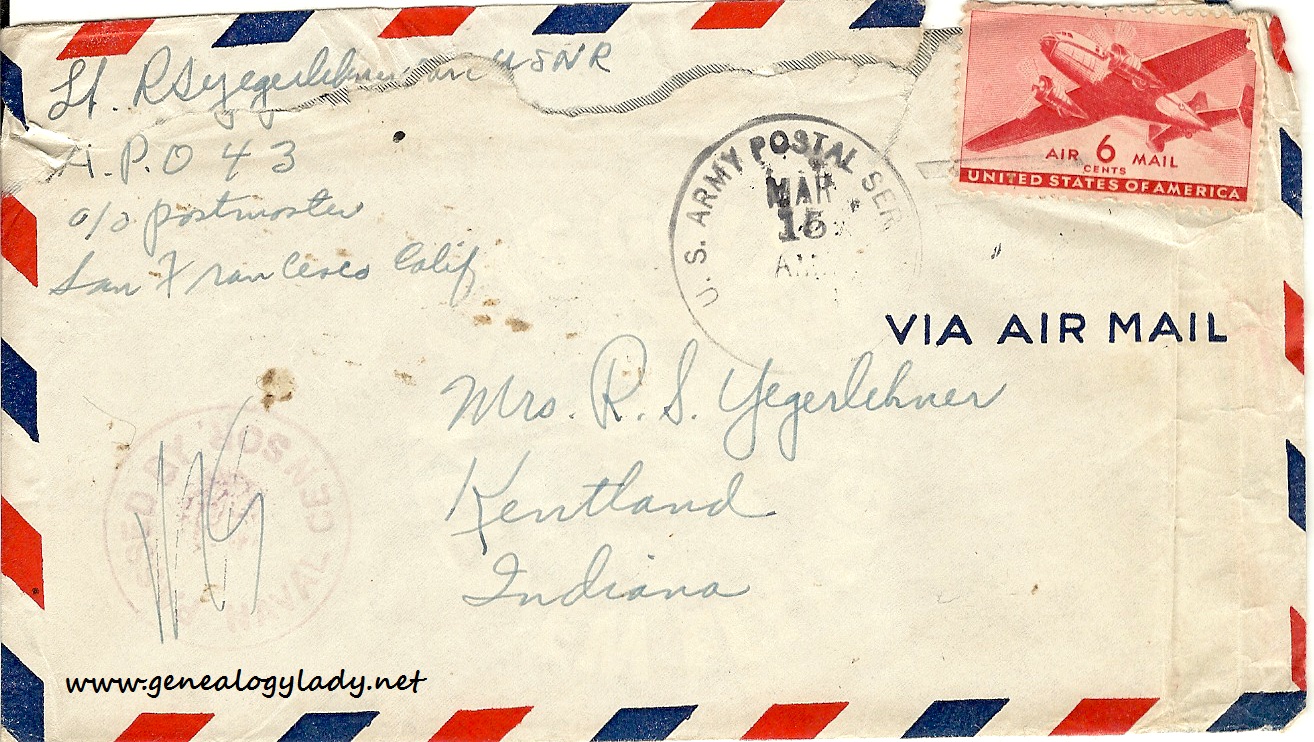 Lt. R S Yegerlehner USNR
A.P.O 43
c/o postmaster
San Francisco Calif
U.S. ARMY POSTAL SER
MAR
15
AM
AIR 6 MAIL
CENTS
UNITED STATES OF AMERICA
VIA AIR MAIL
Mrs. R. S. Yegerlehner
Kentland
Indiana
BY NAVAL CENSOR
www.genealogylady.net